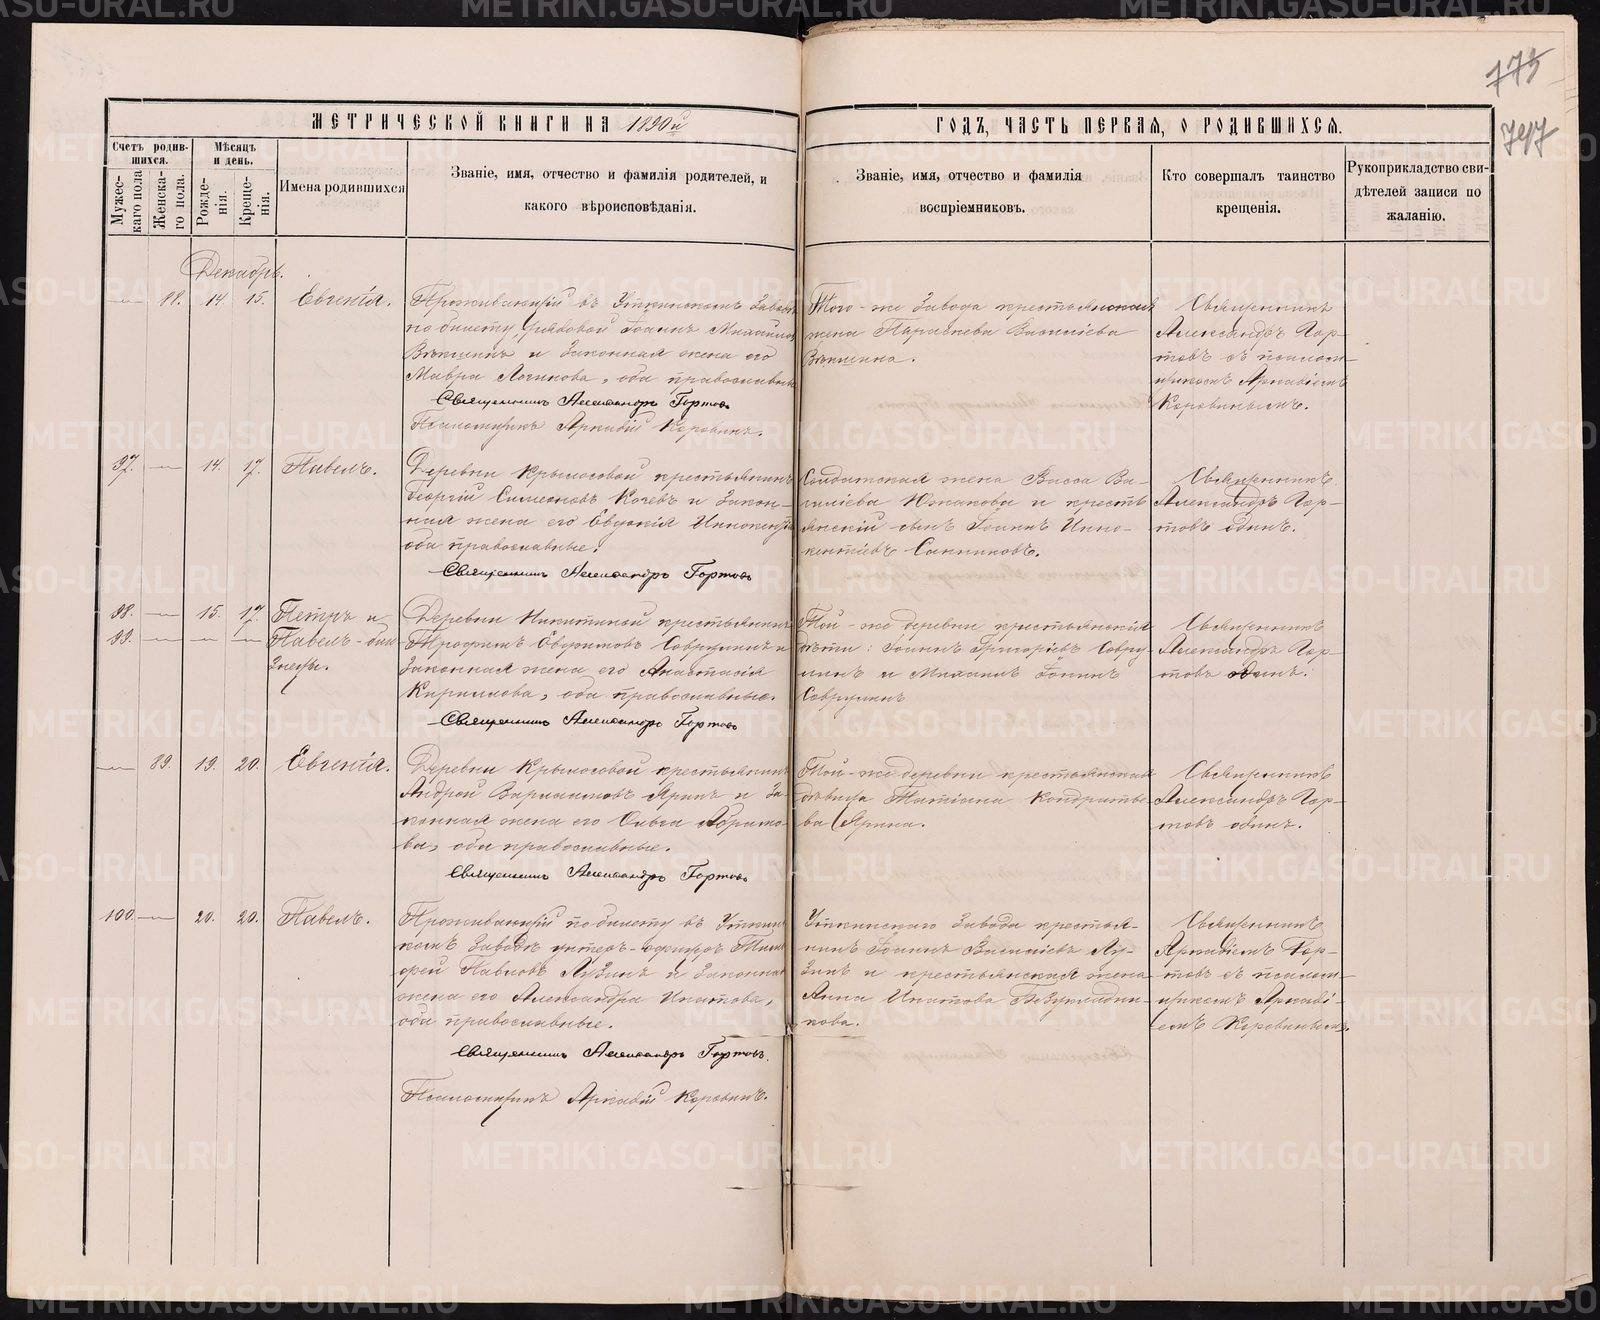 775
797
МЕТРИЧЕСКОЙ КНИГИ НА 1890й
ГОДЪ, ЧАСТЬ ПЕРВАЯ, О РОДИВШИХСЯ.
Счетъ родив-
шихся.
Мѣсяцъ
и день.
Мужес-
каго пола
Женска-
го пола.
Рожде-
нія.
Креще-
нія.
Имена родившихся
Званіе, имя, отчество и фамилія родителей, и
какого вѣроисповѣданія.
Званіе, имя, отчество и фамилія
воспріемниковъ.
Кто совершалъ таинство
крещенія.
Рукоприкладство сви-
дѣтелей записи по
жаланію.
Декабрь.
88. 14. 15. Евгенія.
Проживающій въ Уткинскомъ Заводѣ
по билету рядовой Іоаннъ Михайлов
и законная жена его
Мавра Логинова, оба православные
Священникъ Александръ Гортовъ
Псаломщикъ Аркадій Коровинъ.
Того-же Завода крестьянская
жена Параскева Василіева
Священникъ
Александръ Гор-
товъ съ псалом-
щикомъ Аркадіемъ
Коровинымъ.
97. 14. 17. Павелъ.
Деревни Крылосовой крестьянинъ
Георгій Симеоновъ и закон-
ная жена его Евдокія
оба православные.
Священникъ Александръ Гортовъ
Солдатская жена Васса Ва-
силіева Южакова и кресть
янскій сынъ Іоаннъ Инно-
кентіевъ Санниковъ.
Священникъ
Александръ Гор-
товъ одинъ.
98. 15. 17. Петръ и
99. Павелъ - бли
знецы.
Деревни Никитиной крестьянинъ
Трофимъ и
законная жена его Анастасія
Кириллова, оба православные.
Священникъ Александръ Гортовъ
Той-же деревни крестьянскія
дѣти: Іоаннъ Григоріевъ
и Михаилъ
Священникъ
Александръ Гор-
товъ одинъ.
89. 19. 20. Евгенія.
Деревни Крылосовой крестьянинъ
Андрей Варлаамовъ Яринъ и за-
конная жена его Ольга
ва, оба православные.
Священникъ Александръ Гортовъ
Той-же деревни крестьянская
дѣвица Татіана Кондратье-
ва Ярина.
Священникъ
Александръ Гор-
товъ одинъ.
100. 20. 20. Павелъ.
Проживающій по билету въ Уткин
скомъ Заводѣ унтеръ-офицеръ Тимо
фей Павловъ Лузинъ и законная
жена его Александра Ипатова,
оба православные.
Священникъ Александръ Гортовъ.
Псаломщикъ Аркадій Коровинъ.
Уткинскаго Завода крестья-
нинъ Іоаннъ Василіевъ Лу-
зинъ и крестьянская жена
Анна Ипатова Безукладни-
кова.
Священникъ
Аркадіемъ Гор-
товъ съ псалом-
щикомъ Аркаді-
емъ Коровинымъ.